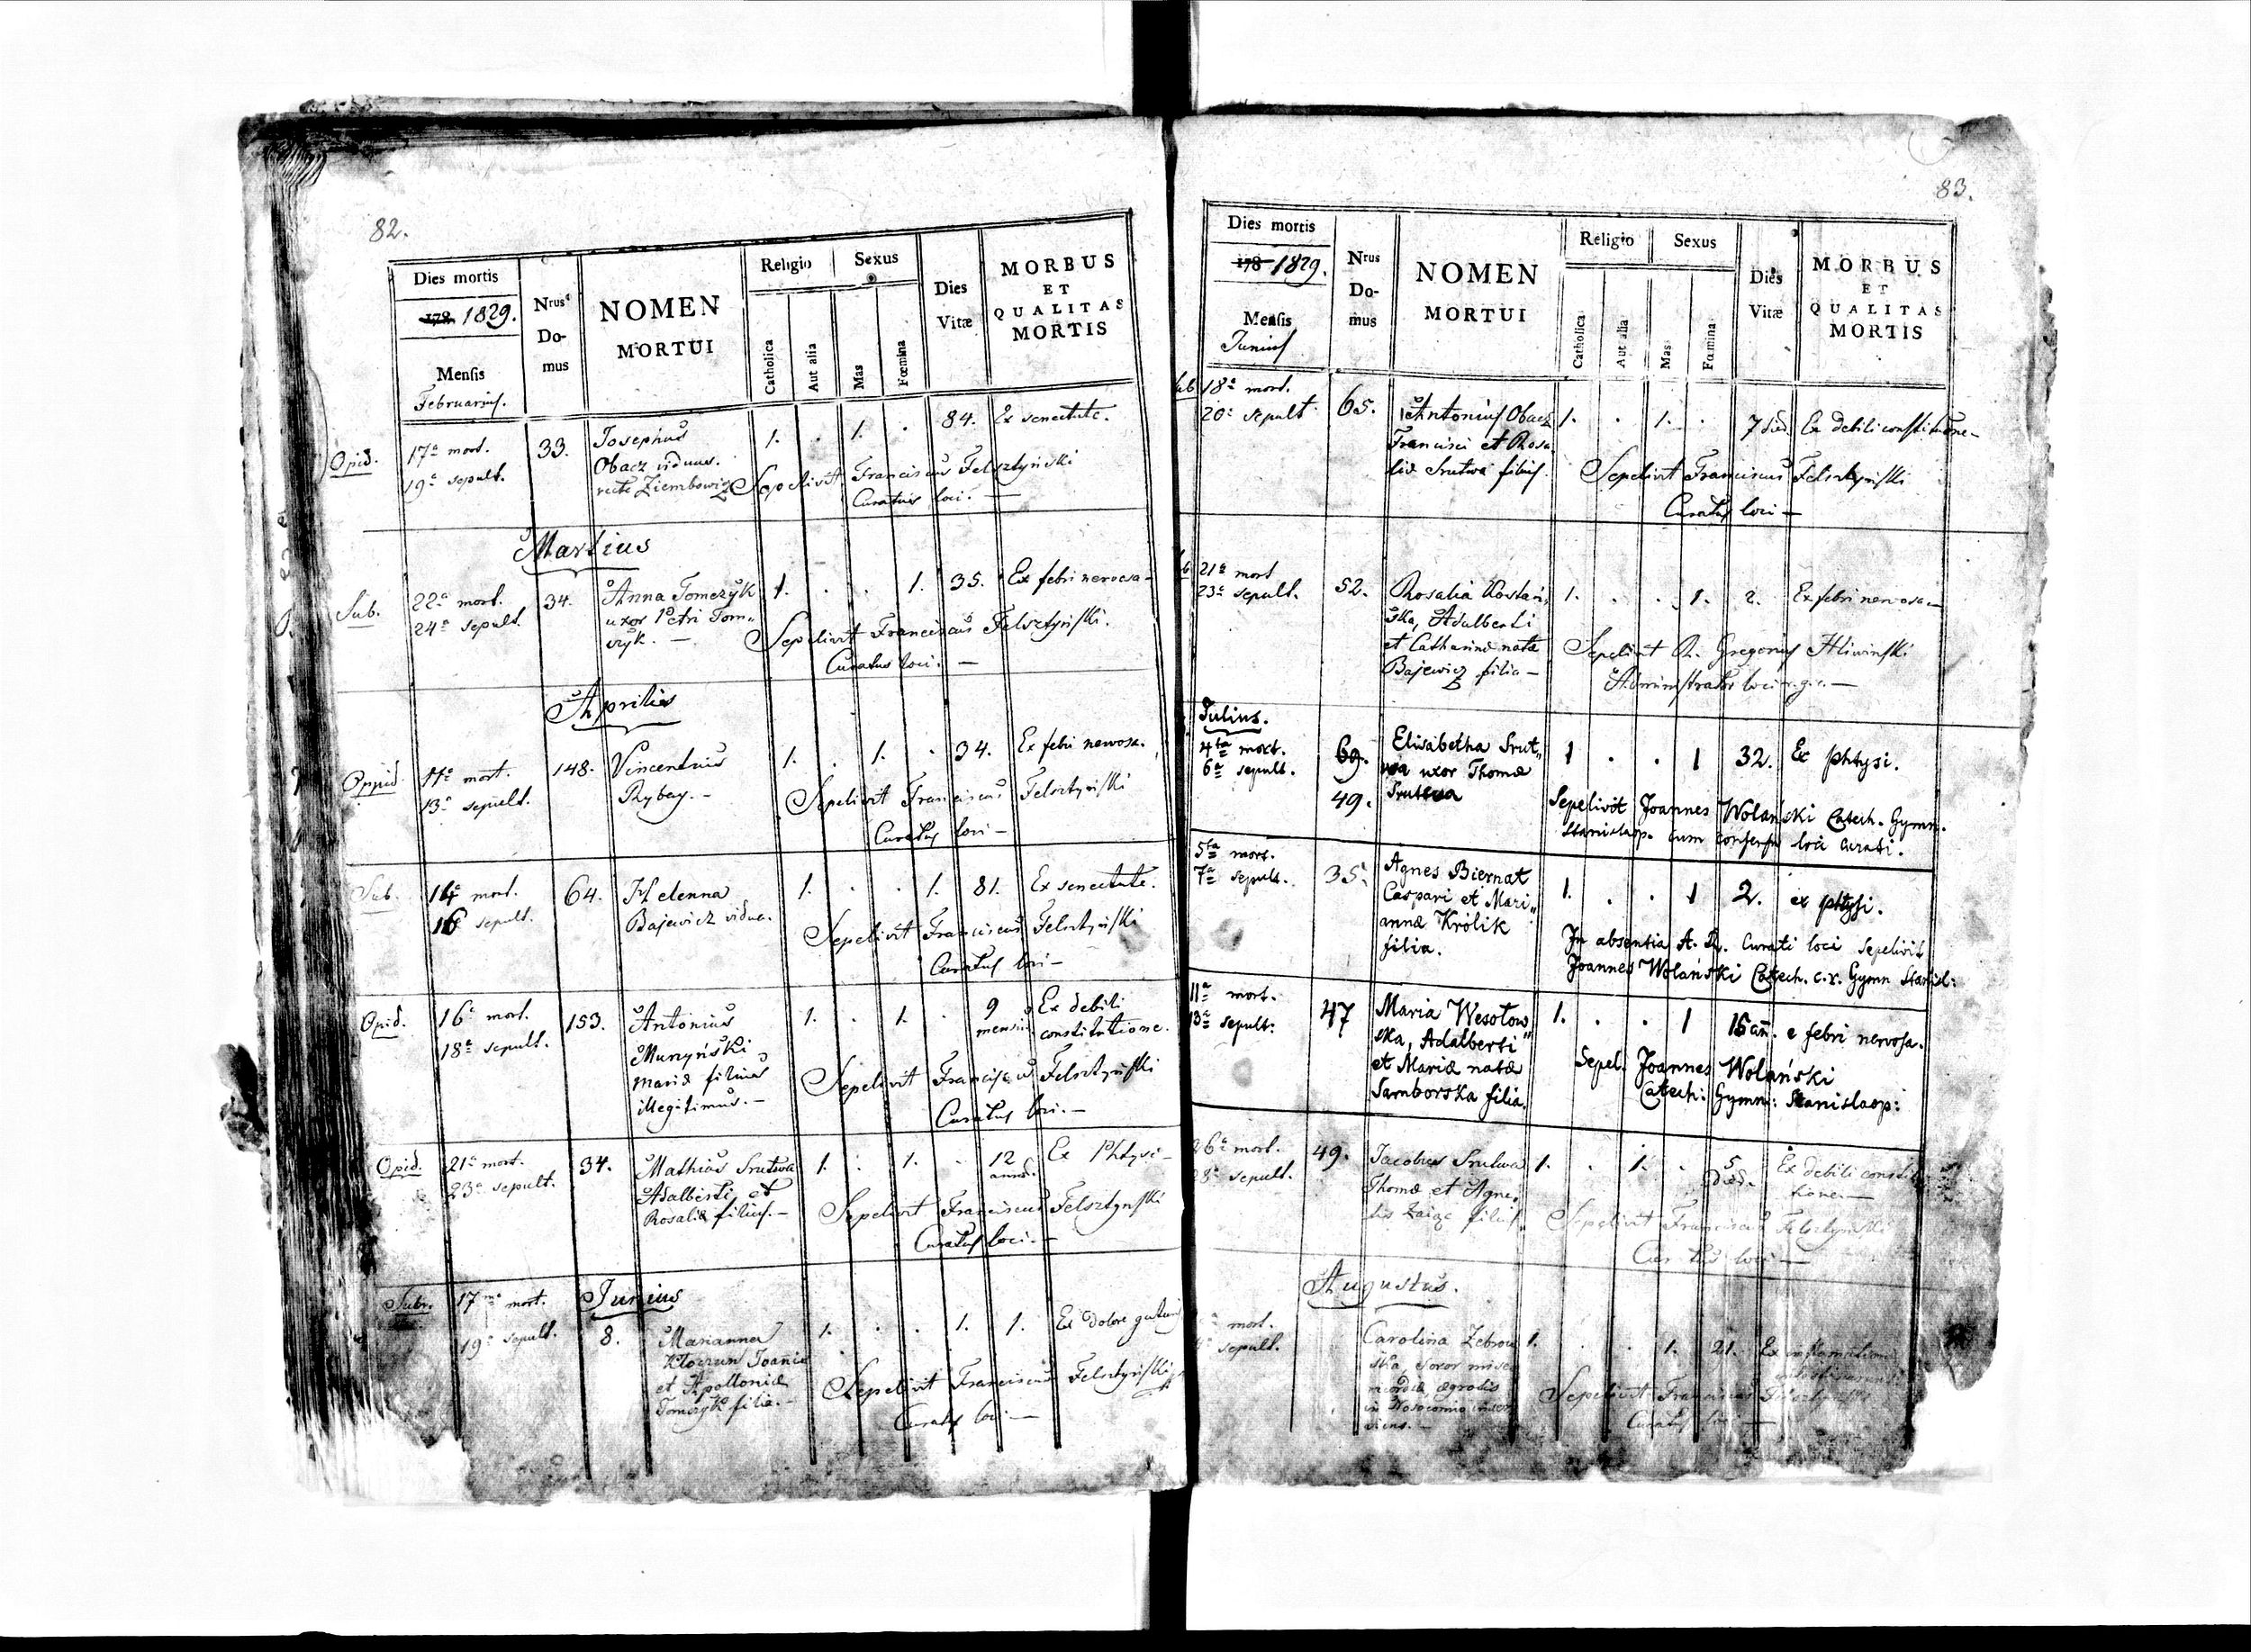 82.
Dies mortis
178 1829.
Mensis
Februarius.
Nrus
Do-
mus
NOMEN
MORTUI
Religio
Catholica
Aut alia
Sexus
Mas
Fœmina
Dies
Vitæ
MORBUS
ET
QUALITAS
MORTIS
Opid. 17a mort. 33. Josephus 1. . 1. . 84. Ex senectute.
19a sepult. Obacz viduus.
recte Ziembowicz Sepelivit Franciscus Felsztyński
Curatus loci. —
Martius
Sub. 22a mort. 34. Anna Tomczyk 1. . . 1. 35. Ex febri nervosa —
24a sepult. uxor Petri Tom„
czyk. — Sepelivit Franciscus Felsztyński.
Curatus loci. —
Aprilis
Oppid. 11a mort. 148. Vincentius 1. . 1. . 34. Ex febri nervosa.
13a sepult. Rybay. — Sepelivit Franciscus Felsztyński
Curatus loci —
Sub. 14a mort. 64. Helenna 1. . . 1. 81. Ex senectute.
16 sepult. Bajewicz vidua. Sepelivit Franciscus Felsztyński
Curatus loci —
Opid. 16a mort. 153. Antonius 1. . 1. . 9 Ex debili
18a sepult. Munyński mensium constitutione.
Mariæ filius Sepelivit Franciscus Felsztyński
illegitimus. — Curatus loci. —
Opid. 21a mort. 34. Mathias Srutwa 1. . 1. . 12 Ex Phtysi —
23a sepult. Adalberti et annor.
Rosaliæ filius. — Sepelivit Franciscus Felsztyński
Curatus loci. —
Junius
Subr. 17ma mort. 8. Marianna 1. . . 1. 1. Ex dolore gutturis
19a sepult. Kloczun Joannis
et Apolloniæ Sepelivit Franciscus Felsztyński
Tomczyk filia. — Curatus loci —
83.
Dies mortis
178 1829.
Mensis
Junius
Nrus
Do-
mus
NOMEN
MORTUI
Religio
Catholica
Aut alia
Sexus
Mas
Fœmina
Dies
Vitæ
MORBUS
ET
QUALITAS
MORTIS
18a mort. 65. Antonius Obacz 1. . 1. . 7 died. Ex debili constitutione —
20a sepult. Francisci et Rosa
liæ Srutwa filius. Sepelivit Franciscus Felsztyński
Curatus loci —
21a mort 52. Rosalia 1. . . 1. 2. Ex febri nervosa —
23a sepult. ska, Adalberti
et Catharinæ natæ Sepelivit R. Gregorius Hliwinski
Bajewicz filia — Administrator loci r. g. c. —
Julius.
4ta mort. 69. Elisabetha Srut„ 1 . . 1 32. Ex phtysi.
6a sepult. wa uxor Thomæ
49. Srutwa Sepelivit Joannes Wolański Catech. Gymn.
Stanislaop. cum consensu loci curati.
5ta mort. 35. Agnes Biernat 1. . . 1 2. ex phtysi.
7a sepult. Caspari et Mari„
annæ Królik In absentia A. R. Curati loci sepelivit
filia. Joannes Wolański Catech. c. r. Gymn Stanisl:
11a mort. 47 Maria Wesołow„ 1. . . 1 15 añ. e febri nervosa.
13a sepult: ska, Adalberti
et Mariæ natæ Sepel. Joannes Wolański
Samborska filia. Catech: Gymn: Stanislaop:
26a mort. 49. Jacobus Srutwa 1. . 1. . 5 Ex debili constitu
28a sepult. Thomæ et Agne„ died. tione. —
tis Zając filius. Sepelivit Franciscus Felsztyński
Curatus loci —
Augustus.
mort. Carolina Zebrow 1. . . 1. 21. Ex inflamatione
sepult. ska, soror mise
ricordiæ, ægrotis Sepelivit Franciscus Felsztyński
in Nosocomio inser Curatus loci —
viens. —